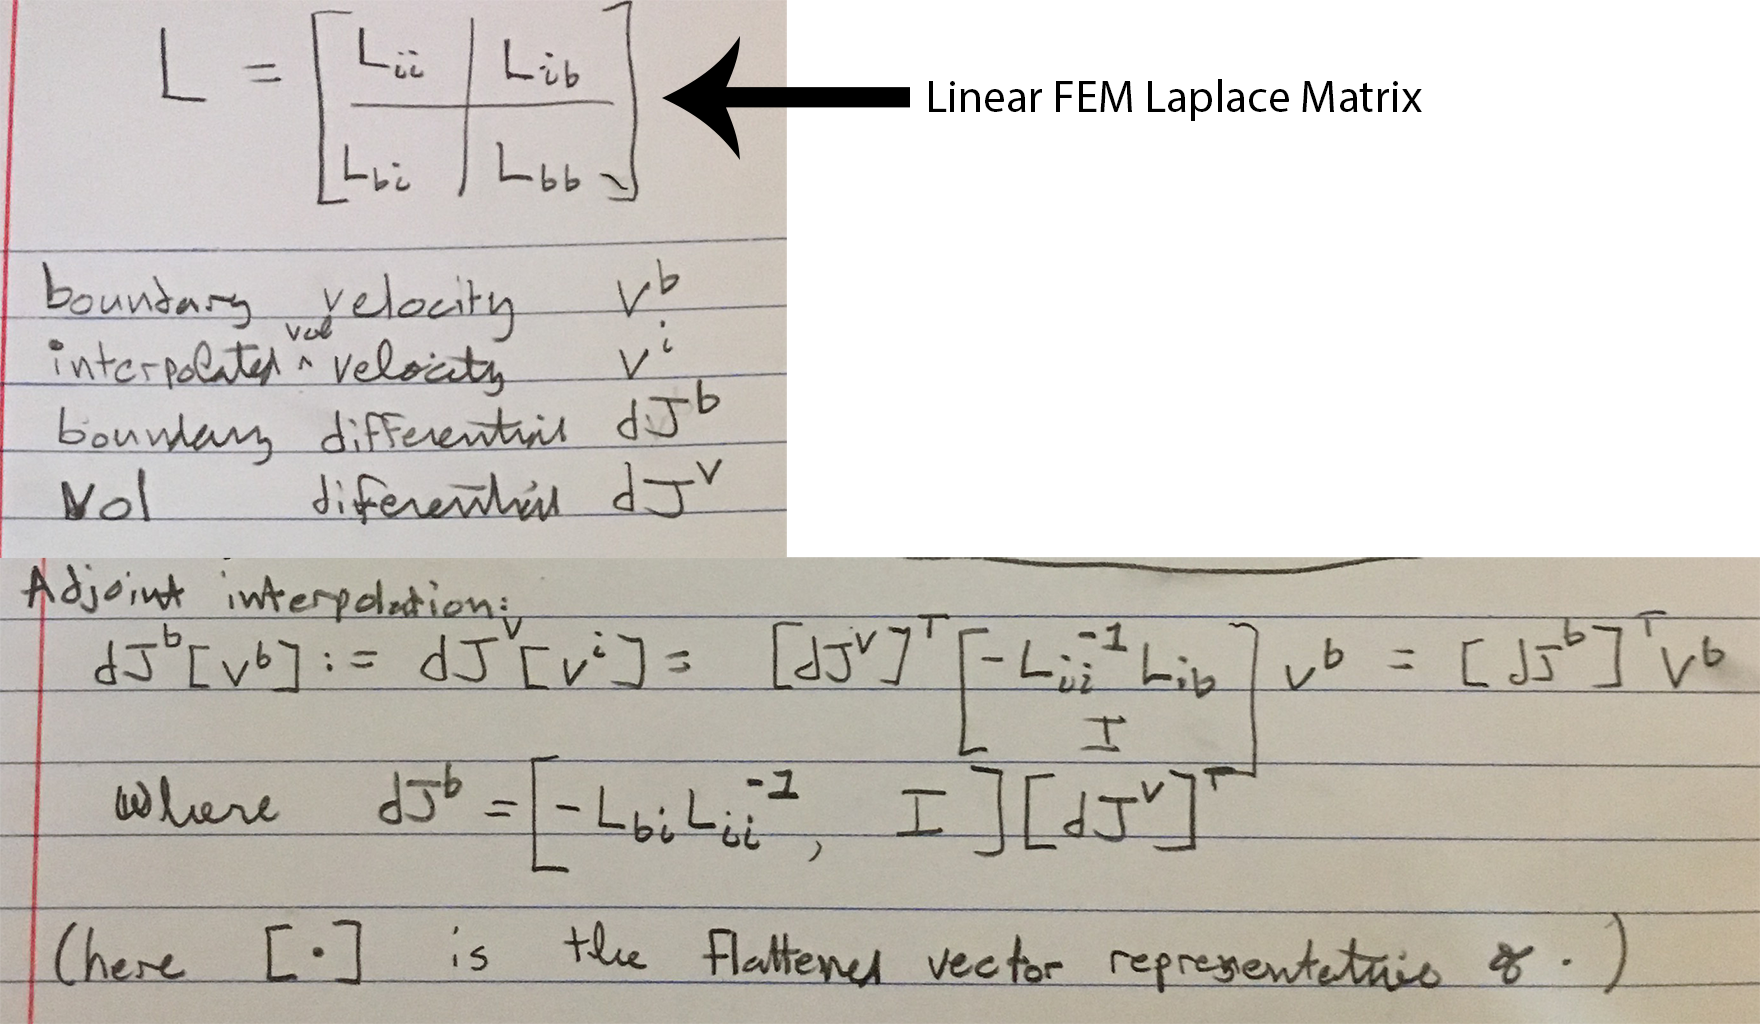 L = [ L_ii | L_ib ; L_bi | L_bb ]
Linear FEM Laplace Matrix
boundary velocity v^b
interpolated ^vol velocity v^i
boundary differential dJ^b
Vol diferential dJ^v
Adjoint interpolation:
dJ^b [v^b] := dJ^v [v^i] = [dJ^v]^T [ -L_ii^-1 L_ib ; I ] v^b = [dJ^b]^T v^b
Where dJ^b = [ -L_bi L_ii^-1 , I ] [dJ^v]^T
(here [·] is the flattened vector of ·)